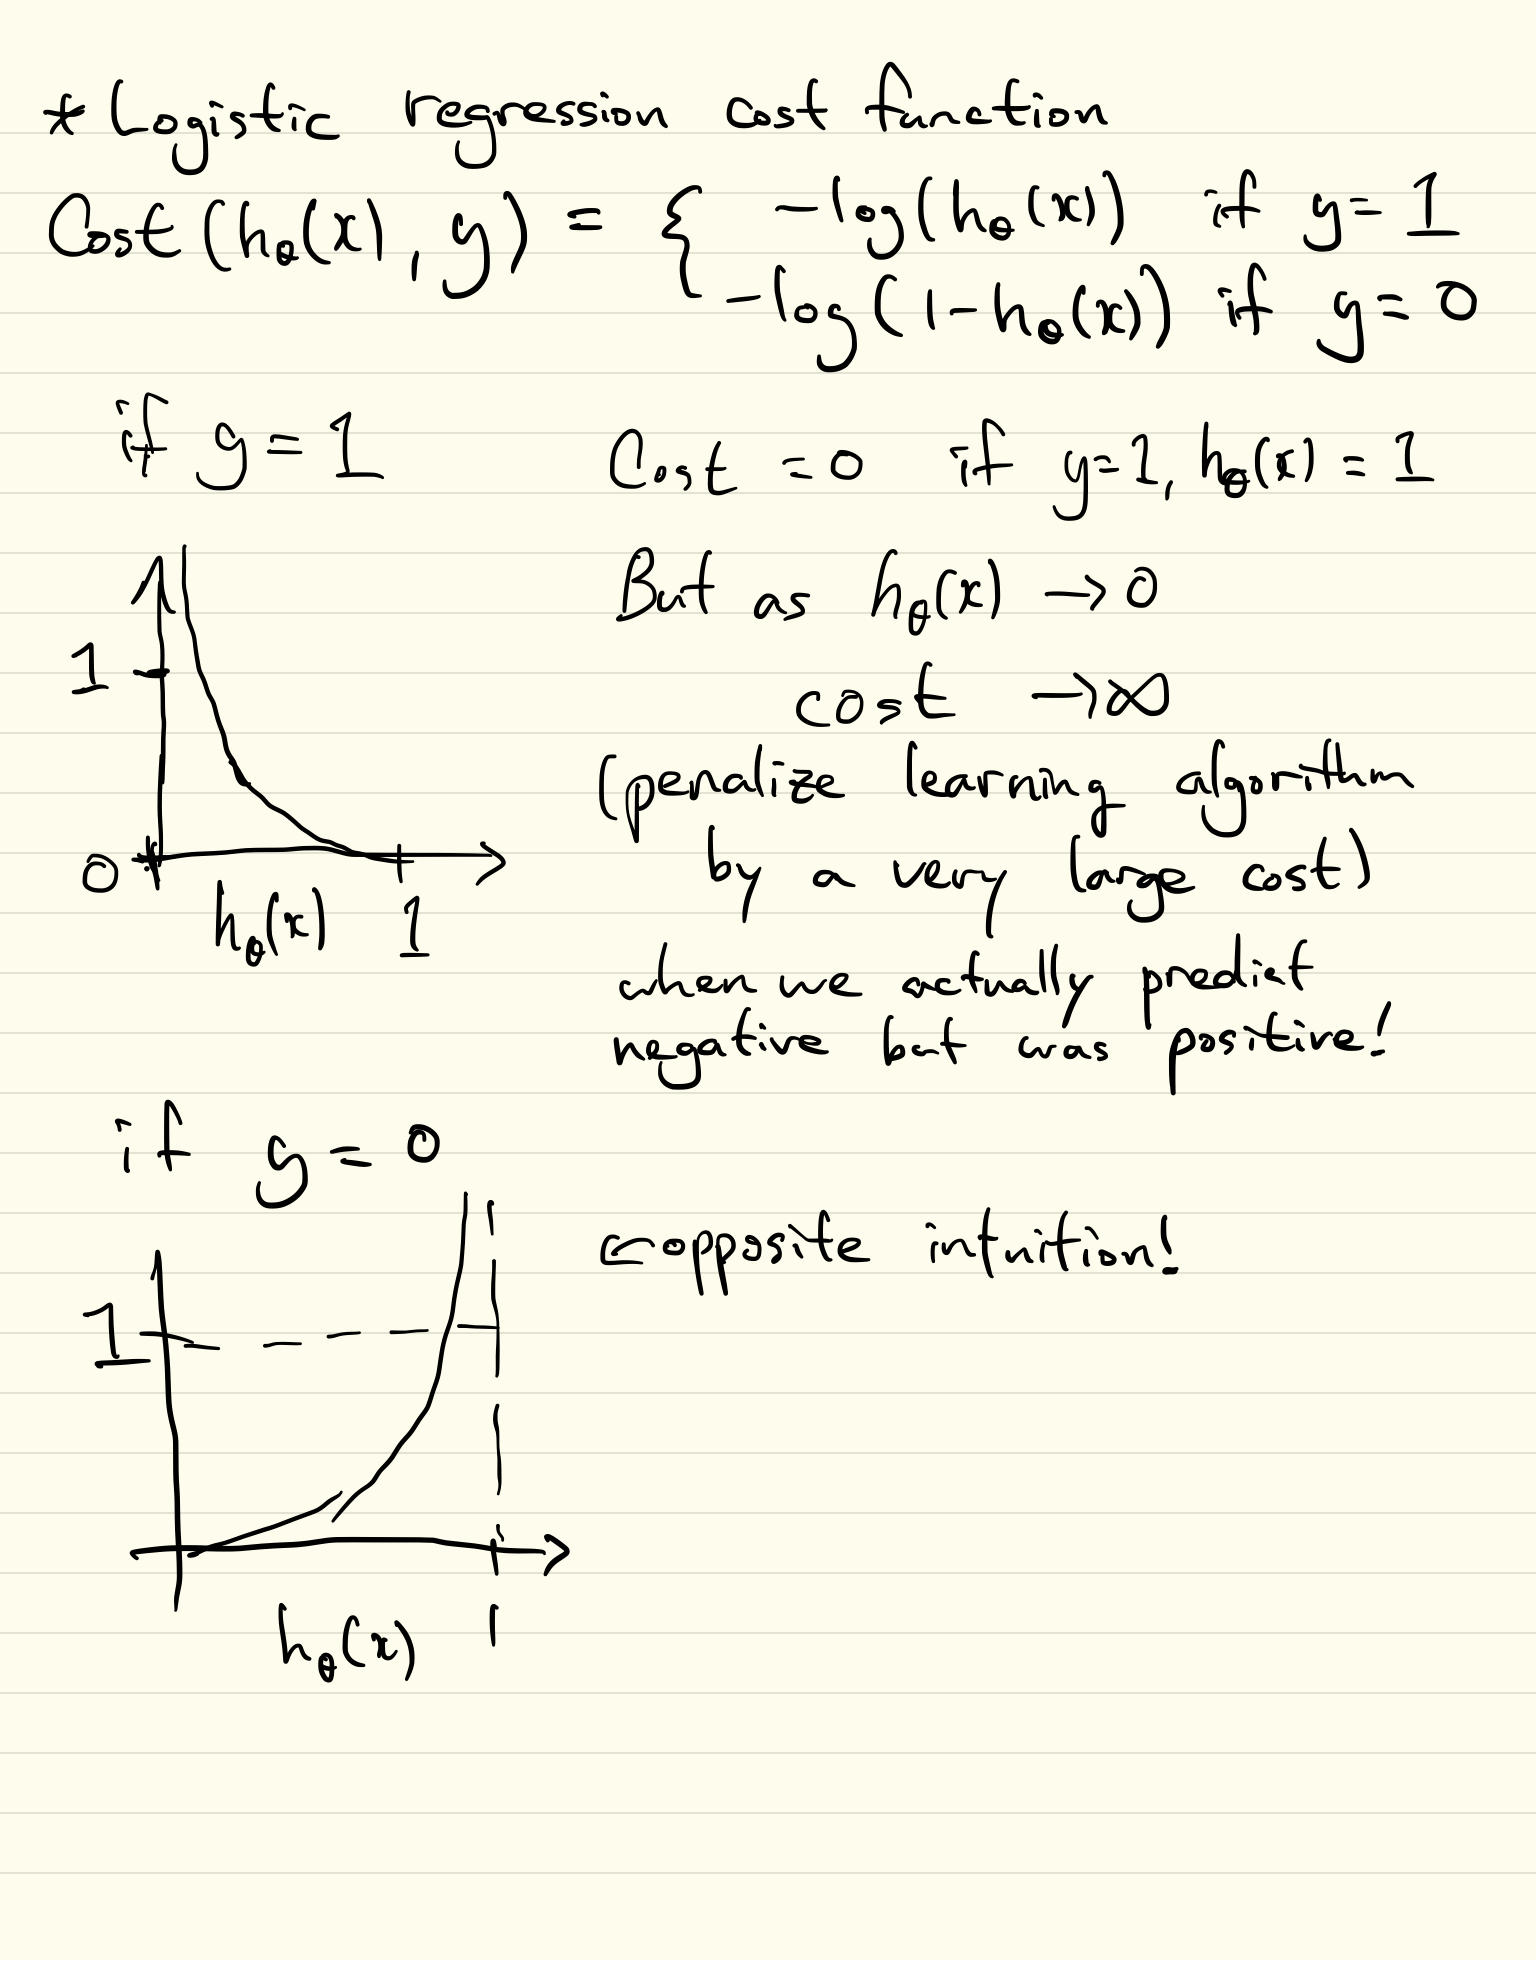 * Logistic regression cost function
Cost(hθ(x), y) = { -log(hθ(x)) if y=1
-log(1-hθ(x)) if y=0
if y=1
Cost =0 if y=1, hθ(x) = 1
1
0
hθ(x) 1
But as hθ(x) →0
cost →∞
(penalize learning algorithm
by a very large cost)
when we actually predict
negative but was positive!
if y=0
←opposite intuition!
1
hθ(x) 1